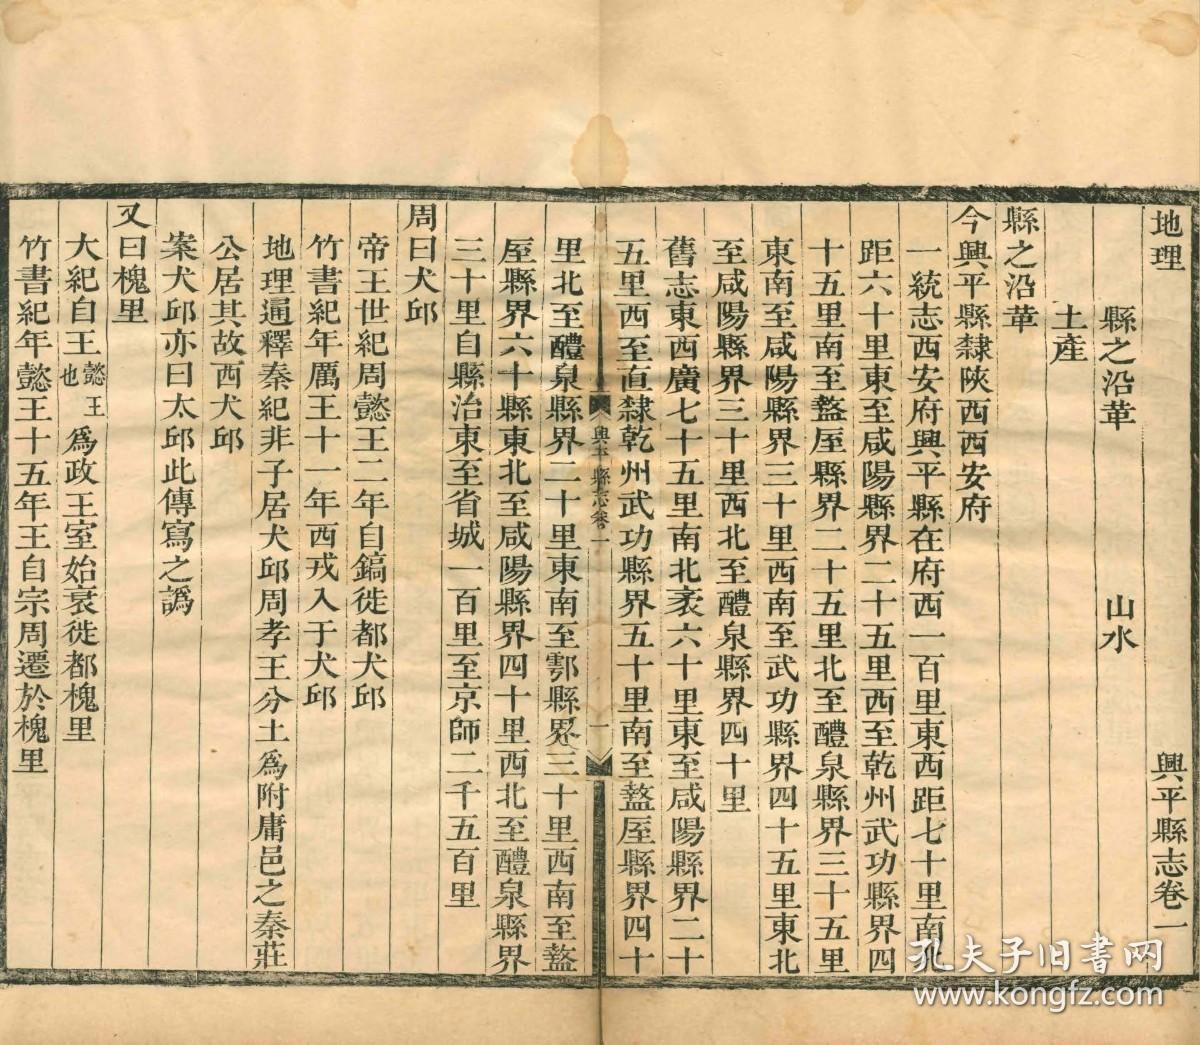 地理　興平縣志卷一
縣之沿革　山水
土產
縣之沿革
今興平縣隸陝西西安府
一統志西安府興平縣在府西一百里東西距七十里南北
距六十里東至咸陽縣界二十五里西至乾州武功縣界四
十五里南至盩厔縣界二十五里北至醴泉縣界三十五里
東南至咸陽縣界三十里西南至武功縣界四十五里東北
至咸陽縣界三十里西北至醴泉縣界四十里
舊志東西廣七十五里南北袤六十里東至咸陽縣界二十
五里西至直隸乾州武功縣界五十里南至盩厔縣界四十
興平縣志卷一　一
里北至醴泉縣界二十里東南至鄠縣界三十里西南至盩
厔縣界六十縣東北至咸陽縣界四十里西北至醴泉縣界
三十里自縣治東至省城一百里至京師二千五百里
周曰犬邱
帝王世紀周懿王二年自鎬徙都犬邱
竹書紀年厲王十一年西戎入于犬邱
地理通釋秦紀非子居犬邱周孝王分土為附庸邑之秦莊
公居其故西犬邱
案犬邱亦曰太邱此傳寫之譌
又曰槐里
大紀自王懿王也為政王室始衰徙都槐里
竹書紀年懿王十五年王自宗周遷於槐里
孔夫子旧书网
www.kongfz.com